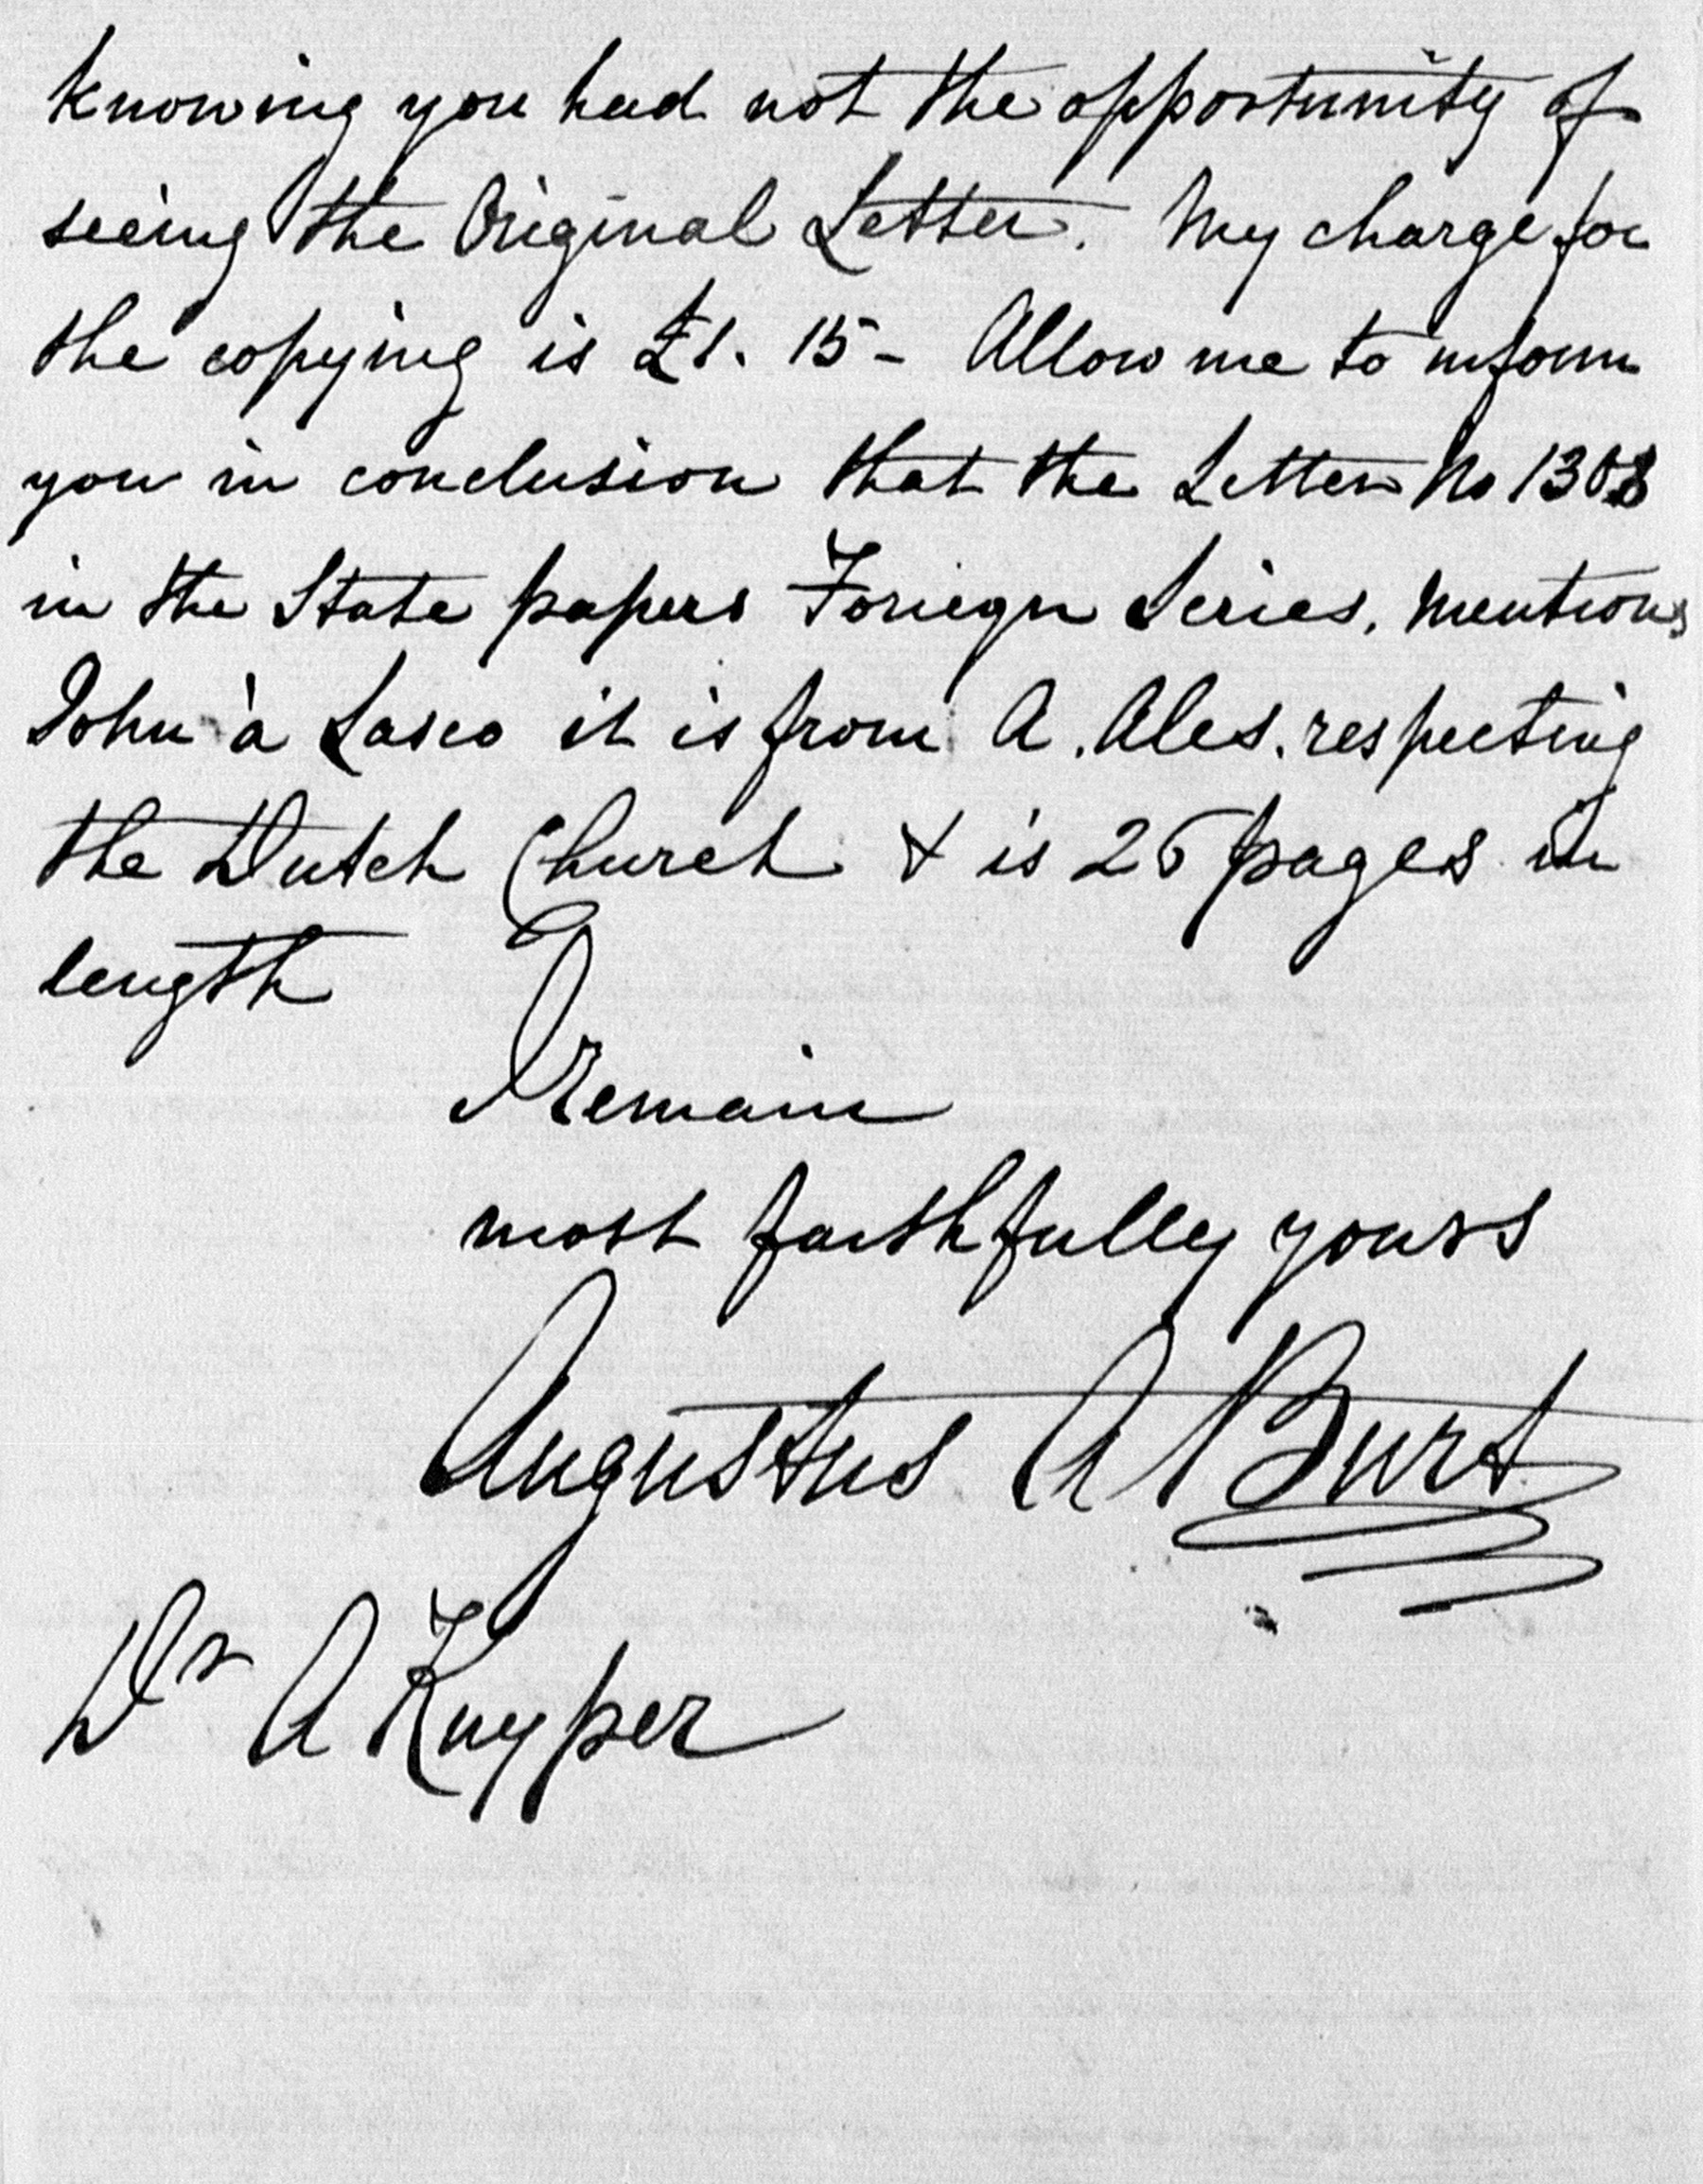 knowing you had not the opportunity of
seeing the Original Letter. My charge for
the copying is £1. 15 - Allow me to inform
you in conclusion that the Letter No 1308
in the State papers Foriegn Series, mentions
John à Lasco it is from A. Ales. respecting
the Dutch Church & is 26 pages in
length
I Remain
most faithfully yours
Augustus A Burt
Dr A Kuyper